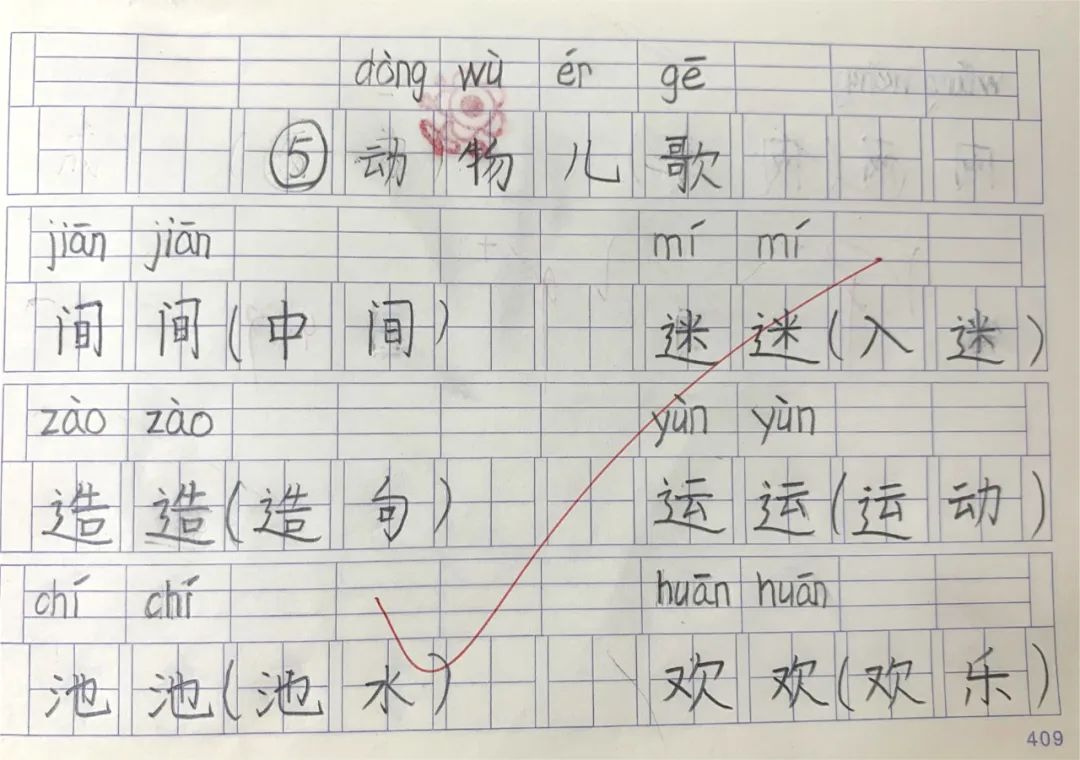 dòng wù ér gē
⑤ 动物儿歌
jiān jiān mí mí
间 间(中间) 迷 迷(入迷)
zào zào yùn yùn
造 造(造句) 运 运(运动)
chí chí huān huān
池 池(池水) 欢 欢(欢乐)
409